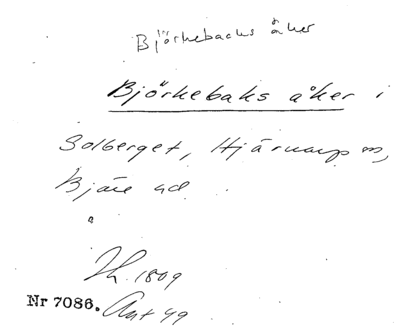 Björkebacks åker
Björkebaks åker i
Solberget, Hjärnarp sn,
Bjäre hd
Lh. 1809
Nr 7086. Akt 49